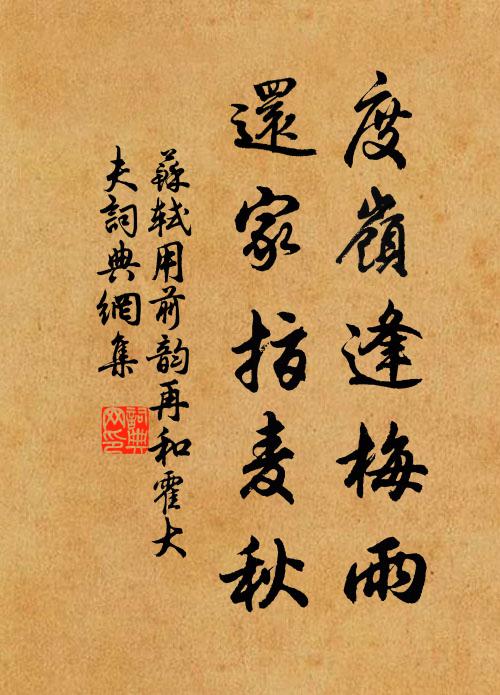 度嶺逢梅雨
還家指麦秋
蘇軾用前韵再和霍大
夫詞典網集
詞典网印